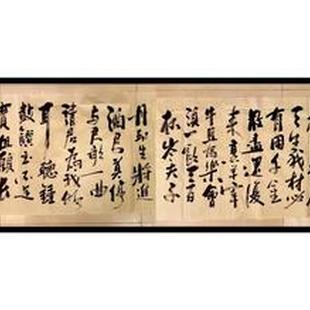 天生我材必
有用千金
散盡還復
来烹羊宰
牛且為樂會
須一飲三百
杯岑夫子
丹丘生將進
酒君莫停
与君歌一曲
請君為我傾
耳聽鐘
鼓饌玉不足
貴但願長